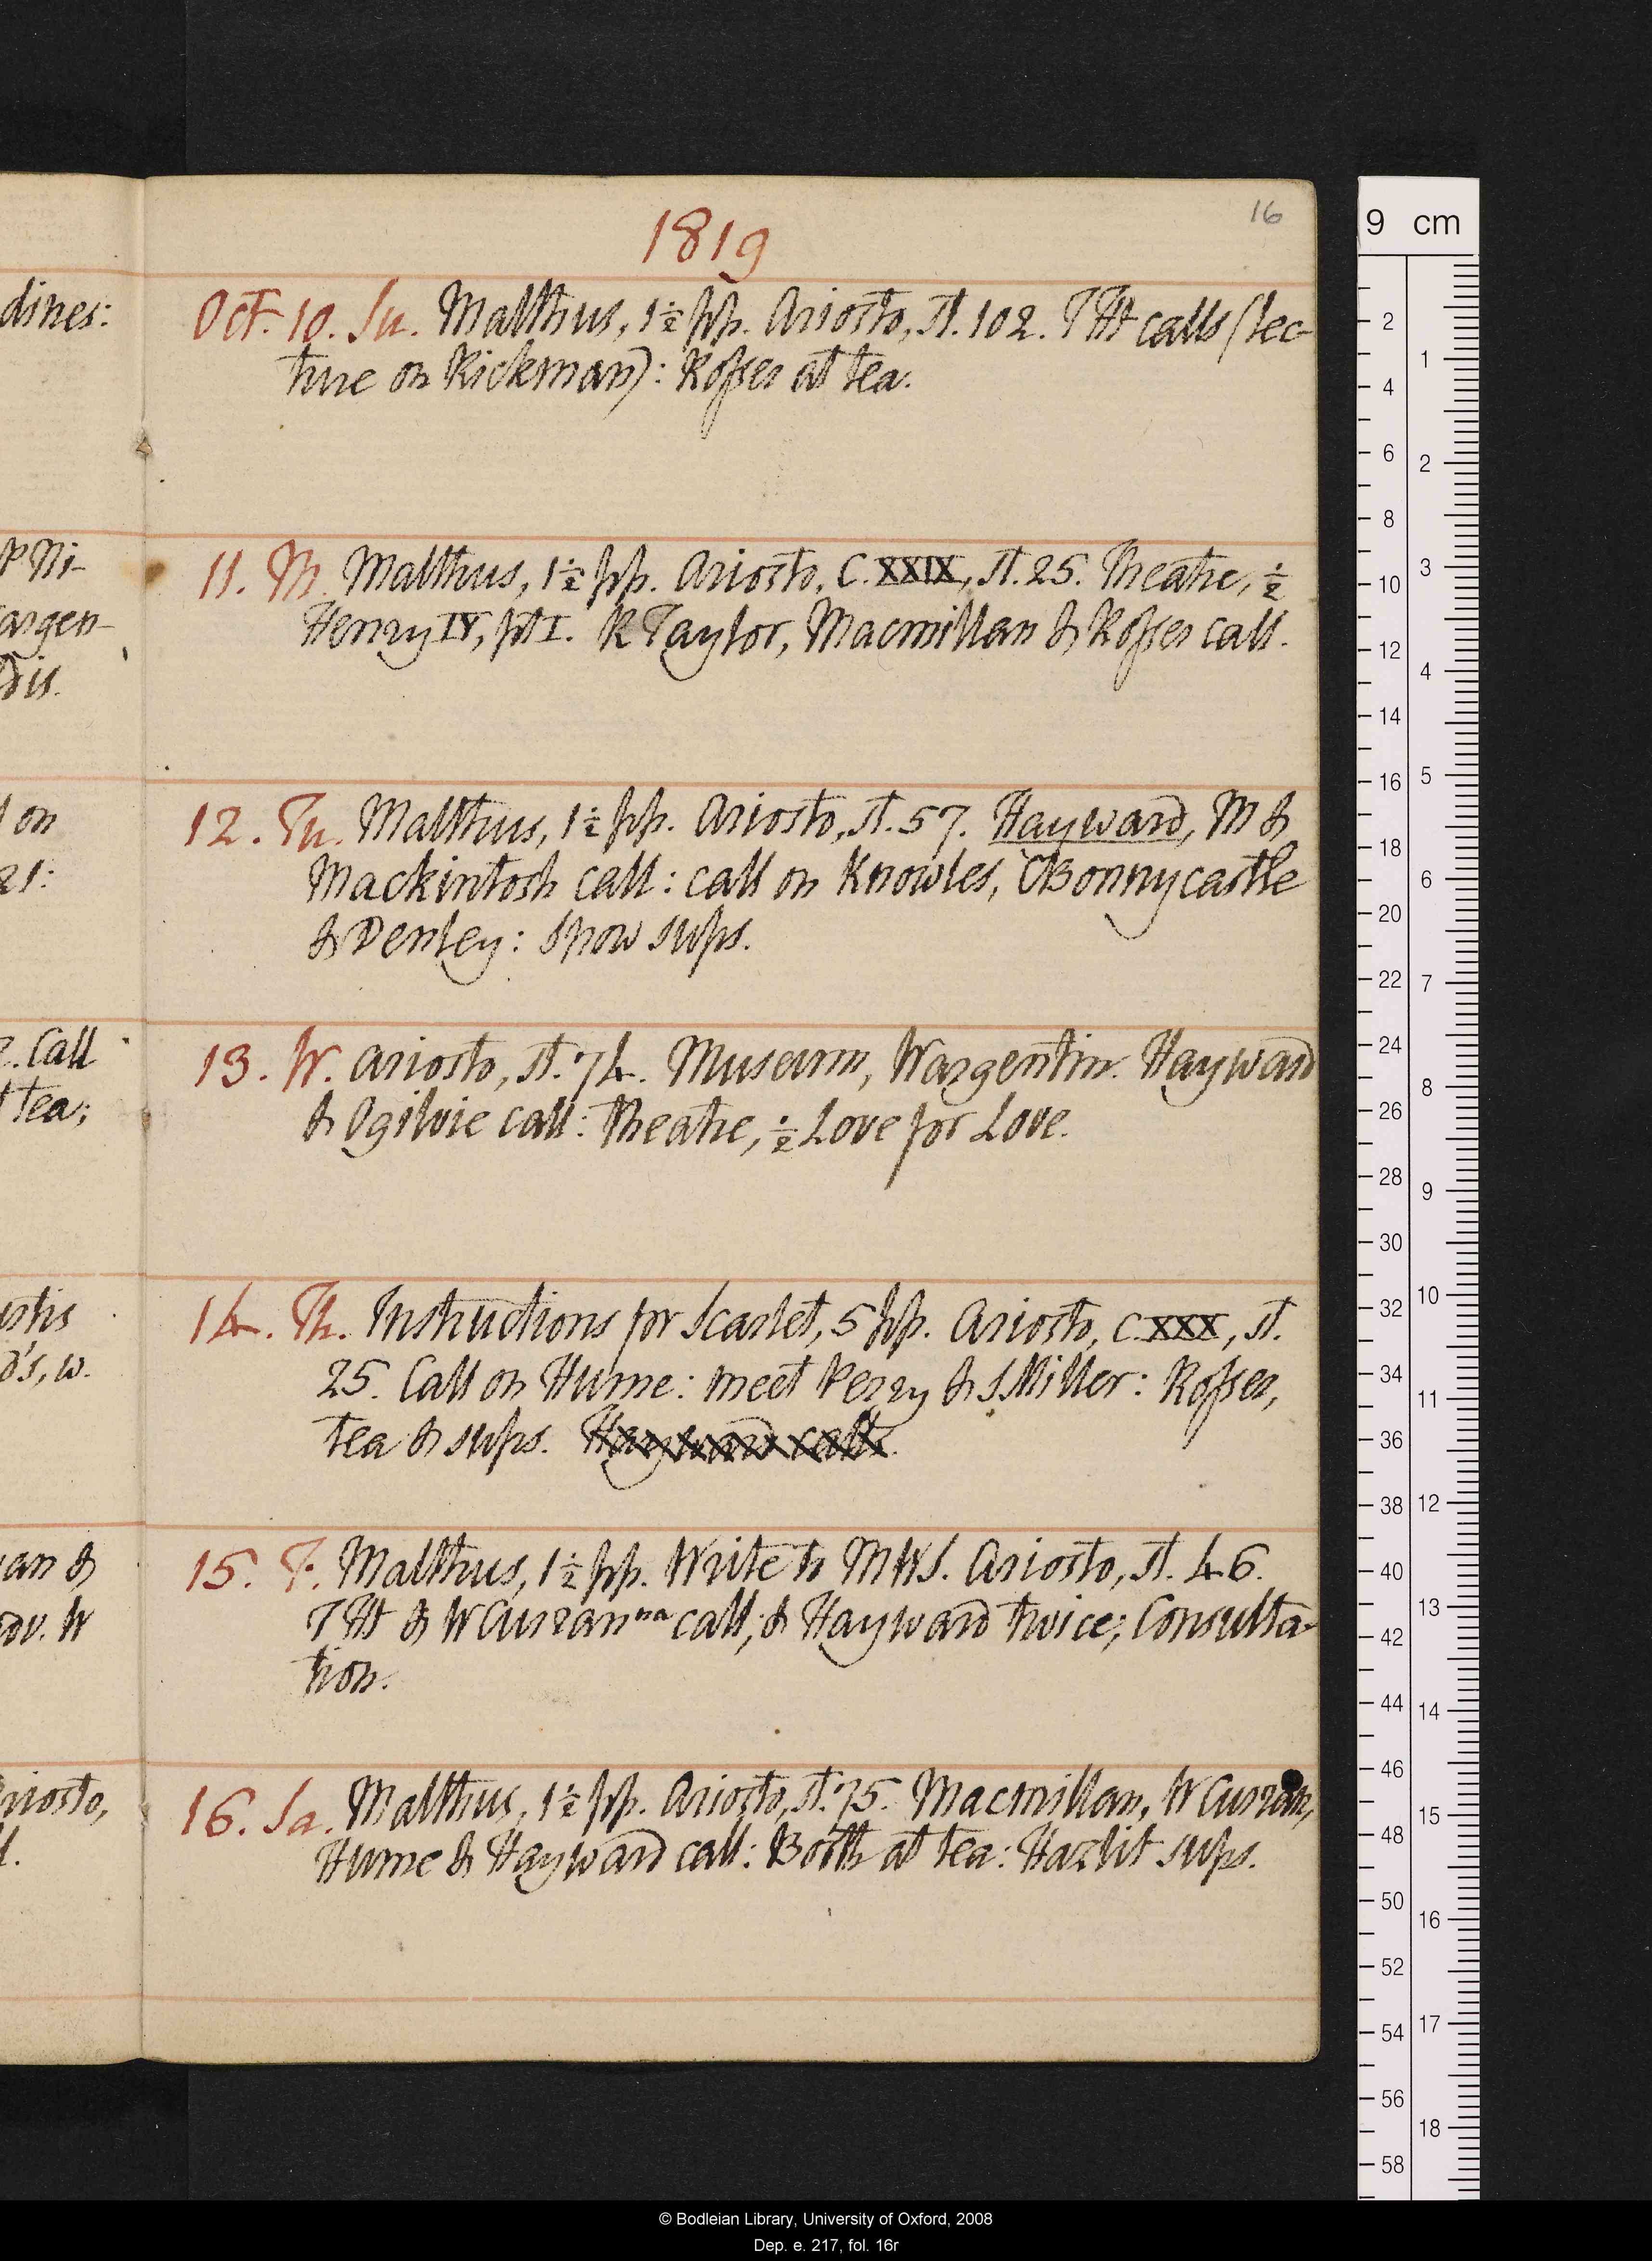 16
1819
dines:
Oct. 10. Su. Malthus, 1½ pp. Ariosto, st. 102. T Tht calls (lec-
ture on Rickman): Rosses at tea.
P Ni-
argen-
dis.
11. M. Malthus, 1½ pp. Ariosto, C. XXIX, st. 25. Theatre, ½
Henry IV, pt I. R Taylor, Macmillan & Rosses call.
on
21:
12. Tu. Malthus, 1½ pp. Ariosto, st. 57. Hayward, M &
Mackintosh call: call on Knowles, C Bonnycastle
& Denley: Snow sups.
Call
tea;
13. W. Ariosto, st. 74. Museum, Wargentin. Hayward
& Ogilvie call: Theatre, ½ Love for Love.
14. Th. Instructions for Scarlet, 5 pp. Ariosto, C. XXX, st.
25. Call on Hume: meet Perry & S Miller: Rosses,
tea & sups. Hayward calls.
d's, w.
an &
ov. W
15. F. Malthus, 1½ pp. Write to MWS. Ariosto, st. 46.
T Tht & W Curran na call; & Hayward twice; Consulta-
tion.
riosto,
l.
16. Sa. Malthus, 1½ pp. Ariosto, st. 75. Macmillan, W Curran,
Hume & Hayward call: Booth at tea: Hazlit sups.
9 cm
2
4
6
8
10
12
14
16
18
20
22
24
26
28
30
32
34
36
38
40
42
44
46
48
50
52
54
56
58
1
2
3
4
5
6
7
8
9
10
11
12
13
14
15
16
17
18
© Bodleian Library, University of Oxford, 2008
Dep. e. 217, fol. 16r